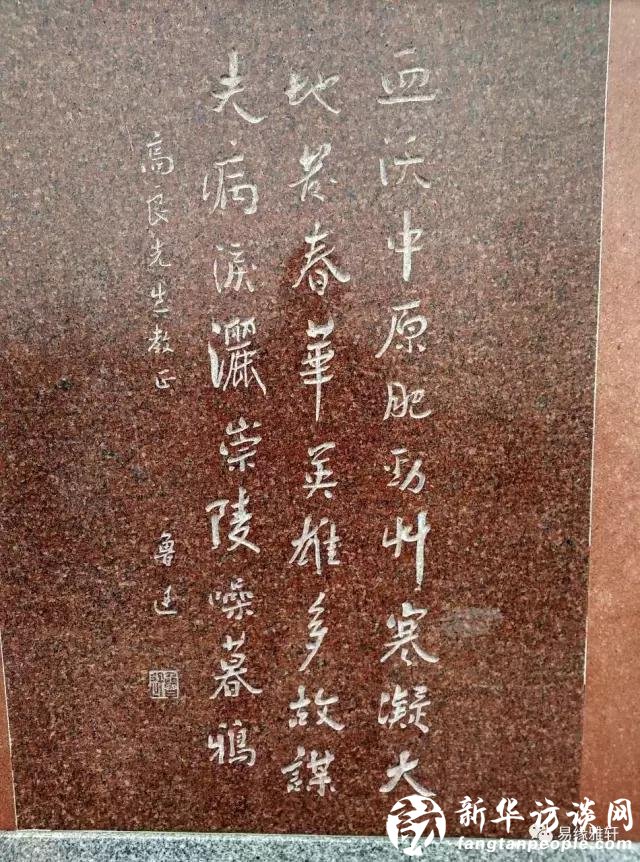 血沃中原肥劲艸寒凝大
地发春華英雄多故謀
夫病淚灑崇陵噪暮鴉
高良先生教正
魯迅
新华访谈网
fangtanpeople.com
易缘雅轩